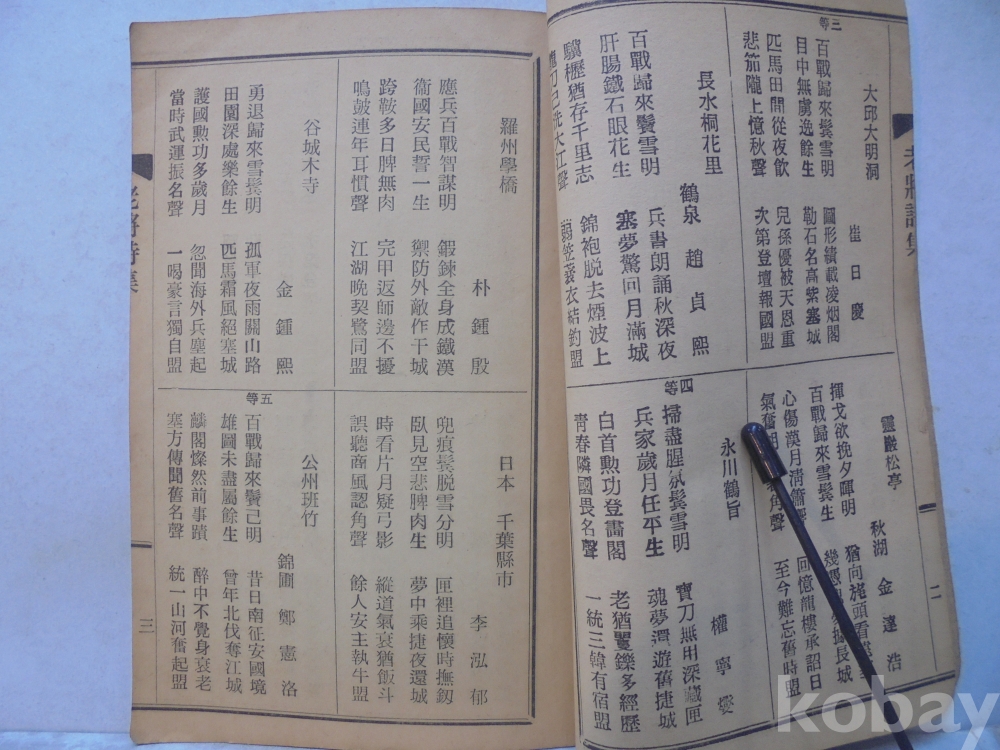 老將詩集
三等
大邱大明洞 崔日慶
百戰歸來鬂雪明 圖形績載凌烟閣
目中無虜逸餘生 勒石名高紫塞城
匹馬田間從夜飲 兒孫優被天恩重
悲笳隴上憶秋聲 次第登壇報國盟
長水桐花里 鶴泉 趙貞熙
百戰歸來鬢雪明 兵書朗誦秋深夜
肝腸鐵石眼花生 塞夢驚回月滿城
驥櫪猶存千里志 錦袍脱去煙波上
刀已洗大江聲 蓑衣結釣盟
靈巖松亭 秋湖 金達浩
揮戈欲挽夕暉明 猶向旄頭看
百戰歸來雪髩生 幾 據長城
心傷漢月淸簫 回憶龍樓承詔日
氣奮 角聲 至今難忘舊時盟
四等
永川鶴旨 權寧燮
掃盡腥氛鬂雪明 寶刀無用深藏匣
兵家歲月任平生 魂夢還遊舊捷城
白首勲功登畵閣 老猶矍鑠多經歷
靑春隣國畏名聲 一統三韓有宿盟
二
羅州學橋 朴鍾殷
應兵百戰智謀明 鍛鍊全身成鐵漢
衞國安民誓一生 禦防外敵作干城
跨鞍多日脾無肉 完甲返師邊不擾
鳴鼓連年耳慣聲 江湖晩契鷺同盟
谷城木寺 金鍾熙
勇退歸來雪鬂明 孤軍夜雨關山路
田園深處樂餘生 匹馬霜風絕塞城
護國勲功多歲月 忽聞海外兵塵起
當時武運振名聲 一喝豪言獨自盟
日本 千葉縣市 李泓郁
兜痕鬂脱雪分明 匣裡追懷時撫釼
臥見空悲脾肉生 夢中乘捷夜還城
時看片月疑弓影 縱道氣衰猶飯斗
誤聽商風認角聲 餘人安主執牛盟
五等
公州班竹 錦圃 鄭憲洛
百戰歸來鬢己明 昔日南征安國境
雄圖未盡屬餘生 曾年北伐奪江城
麟閣燦然前事蹟 醉中不覺身衰老
塞方傳聞舊名聲 統一山河奮起盟
老將詩集
三
kobay